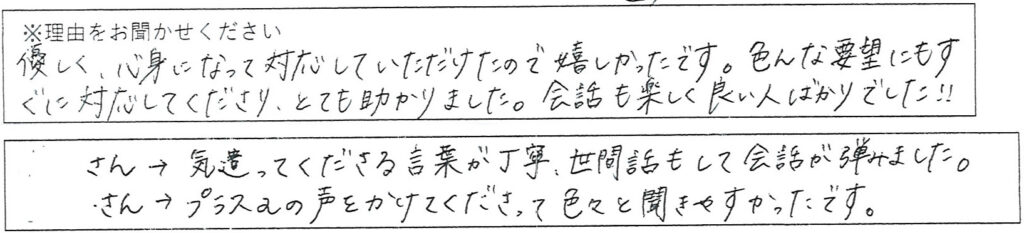 ※理由をお聞かせください
優しく、心身になって対応していただけたので嬉しかったです。色んな要望にもす
ぐに対応してくださり、とても助かりました。会話も楽しく良い人ばかりでした!!
さん→気遣ってくださる言葉が丁寧、世間話もして会話が弾みました。
さん→プラスαの声をかけてくださって色々と聞きやすかったです。